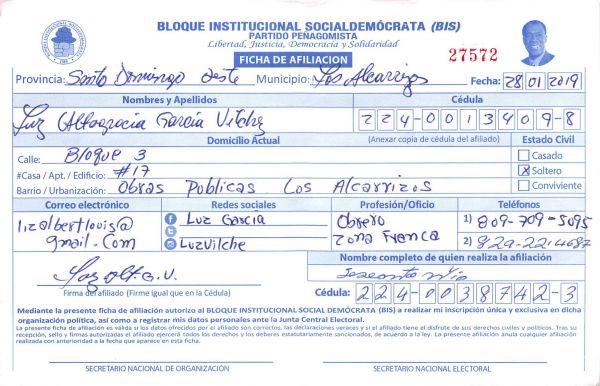 BLOQUE INSTITUCIONAL SOCIALDEMÓCRATA (BIS)
PARTIDO PEÑAGOMISTA
Libertad, Justicia, Democracia y Solidaridad
FICHA DE AFILIACION
27572
Provincia: Santo Domingo oeste Municipio: Los Alcarrizos Fecha: 28/01/2019
Nombres y Apellidos Cédula
Luz Altagracia García Vilchz 224-0013409-8
Domicilio Actual (Anexar copia de cédula del afiliado) Estado Civil
Calle: Bloque 3 Casado
#Casa / Apt. / Edificio: #17 X Soltero
Barrio / Urbanización: Obras Publicas Los Alcarrizos Conviviente
Correo electrónico Redes sociales Profesión/Oficio Teléfonos
lizalbertlouis@ Luz García Obrero 1) 809-709-5095
gmail.Com LuzVilche Zona Franca 2) 829-22-4687
Nombre completo de quien realiza la afiliación
Firma del afiliado (Firme igual que en la Cédula) Cédula: 224-0038742-3
Mediante la presente ficha de afiliación autorizo al BLOQUE INSTITUCIONAL SOCIAL DEMÓCRATA (BIS) a realizar mi inscripción única y exclusiva en dicha
organización política, así como a registrar mis datos personales ante la Junta Central Electoral.
La presente ficha de afiliación es válida si los datos ofrecidos por el afiliado son correctos, las declaraciones veraces y si el afiliado tiene el disfrute de sus derechos civiles y políticos. Tras su
recepción, sello y firmas autorizadas el afiliado ejercerá todos los derechos y los deberes estatutariamente sancionados, de acuerdo a la ley. La presente afiliación anula cualquier afiliación
realizada con anterioridad a la fecha que aparece en esta ficha.
SECRETARIO NACIONAL DE ORGANIZACIÓN SECRETARIO NACIONAL ELECTORAL